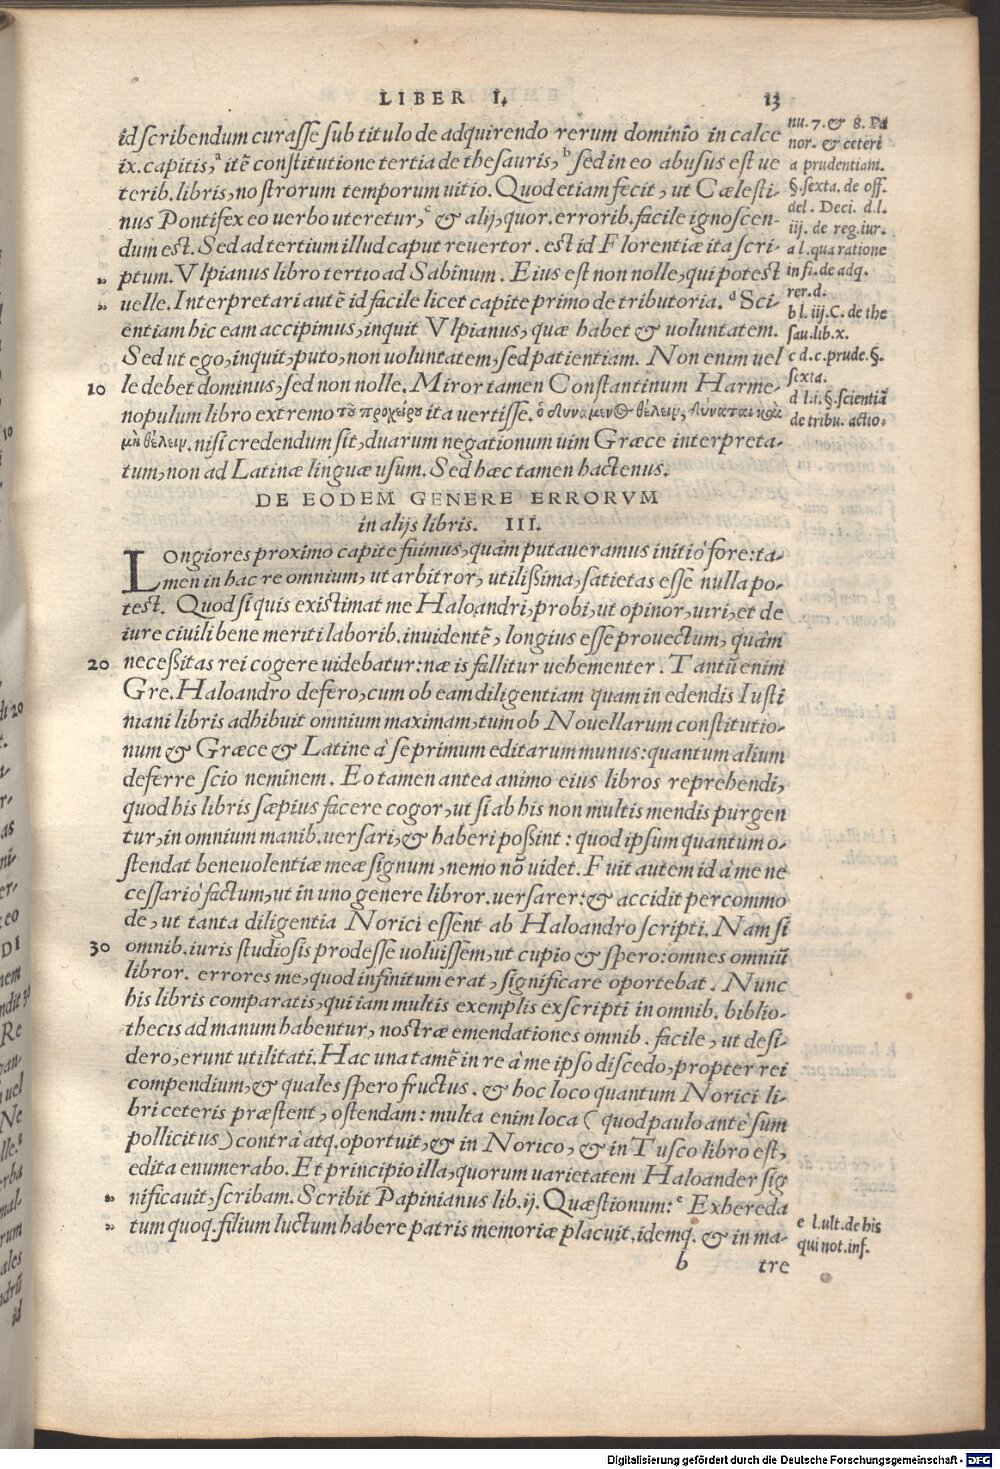 LIBER I. 13
id scribendum curasse sub titulo de adquirendo rerum dominio in calce
ix. capitis,ᵃ itē constitutione tertia de thesauris,ᵇ sed in eo abusus est ue
terib. libris, nostrorum temporum uitio. Quod etiam fecit, ut Cælesti-
nus Pontifex eo uerbo uteretur,ᶜ & alij, quor. errorib. facile ignoscen-
dum est. Sed ad tertium illud caput reuertor. est id Florentiæ ita scri-
„ ptum. Vlpianus libro tertio ad Sabinum. Eius est non nolle, qui potest
„ uelle. Interpretari autē id facile licet capite primo de tributoria.ᵈ Sci-
entiam hic eam accipimus, inquit Vlpianus, quæ habet & uoluntatem.
Sed ut ego, inquit, puto, non uoluntatem, sed patientiam. Non enim uel
10 le debet dominus, sed non nolle. Miror tamen Constantinum Harme-
nopulum libro extremo τȣ̃ προχείρȣ ita uertisse. ὁ δυνάμενος θέλειν, δύναται καὶ
μὴ θέλειν. nisi credendum sit, duarum negationum uim Græce interpreta-
tum, non ad Latinæ linguæ usum. Sed hæc tamen hactenus.
DE EODEM GENERE ERRORVM
in alijs libris. III.
LONgiores proximo capite fuimus, quàm putaueramus initiò fore: ta-
men in hac re omnium, ut arbitror, utilißima, satietas esse nulla po-
test. Quod si quis existimat me Haloandri, probi, ut opinor, uiri, et de
iure ciuili bene meriti laborib. inuidentē, longius esse prouectum, quàm
20 neceßitas rei cogere uidebatur: næ is fallitur uehementer. Tantū enim
Gre. Haloandro defero, cum ob eam diligentiam quam in edendis Iusti
niani libris adhibuit omnium maximam, tum ob Nouellarum constitutio-
num & Græce & Latine à se primum editarum munus: quantum alium
deferre scio neminem. Eo tamen antea animo eius libros reprehendi,
quod his libris sæpius facere cogor, ut si ab his non multis mendis purgen
tur, in omnium manib. uersari, & haberi poßint: quod ipsum quantum o-
stendat beneuolentiæ meæ signum, nemo nō uidet. Fuit autem id à me ne
cessariò factum, ut in uno genere libror. uersarer: & accidit percommo
de, ut tanta diligentia Norici essent ab Haloandro scripti. Nam si
30 omnib. iuris studiosis prodesse uoluissem, ut cupio & spero: omnes omniū
libror. errores me, quod infinitum erat, significare oportebat. Nunc
his libris comparatis, qui iam multis exemplis exscripti in omnib. biblio-
thecis ad manum habentur, nostræ emendationes omnib. facile, ut desi-
dero, erunt utilitati. Hac una tamē in re à me ipso discedo, propter rei
compendium, & quales spero fructus. & hoc loco quantum Norici li-
bri ceteris præstent, ostendam: multa enim loca (quod paulo antè sum
pollicitus) contrà atq. oportuit, & in Norico, & in Tusco libro est,
edita enumerabo. Et principio illa, quorum uarietatem Haloander sig
„ nificauit, scribam. Scribit Papinianus lib. ij. Quæstionum:ᵉ Exhereda
„ tum quoq. filium luctum habere patris memoriæ placuit. idemq. & in ma-
b tre
nu. 7. & 8. Pa
nor. & ceteri
a prudentiam.
§. sexta. de off.
del. Deci. d. l.
iij. de reg. iur.
a l. qua ratione
in fi. de adq.
rer. d.
b l. iij. C. de the
sau. lib. x.
c d. c. prude. §.
sexta.
d l. i. §. scientiā
de tribu. actio.
e l. ult. de his
qui not. inf.
Digitalisierung gefördert durch die Deutsche Forschungsgemeinschaft - DFG